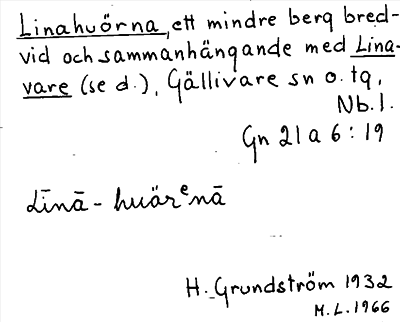 Linahuörna, ett mindre berg bred-
vid och sammanhängande med Lina-
vare (se d.), Gällivare sn o. tg,
Nb.l.
Gn 21 a 6 : 19
Līnā - huärᵉnā
H. Grundström 1932
M.L. 1966